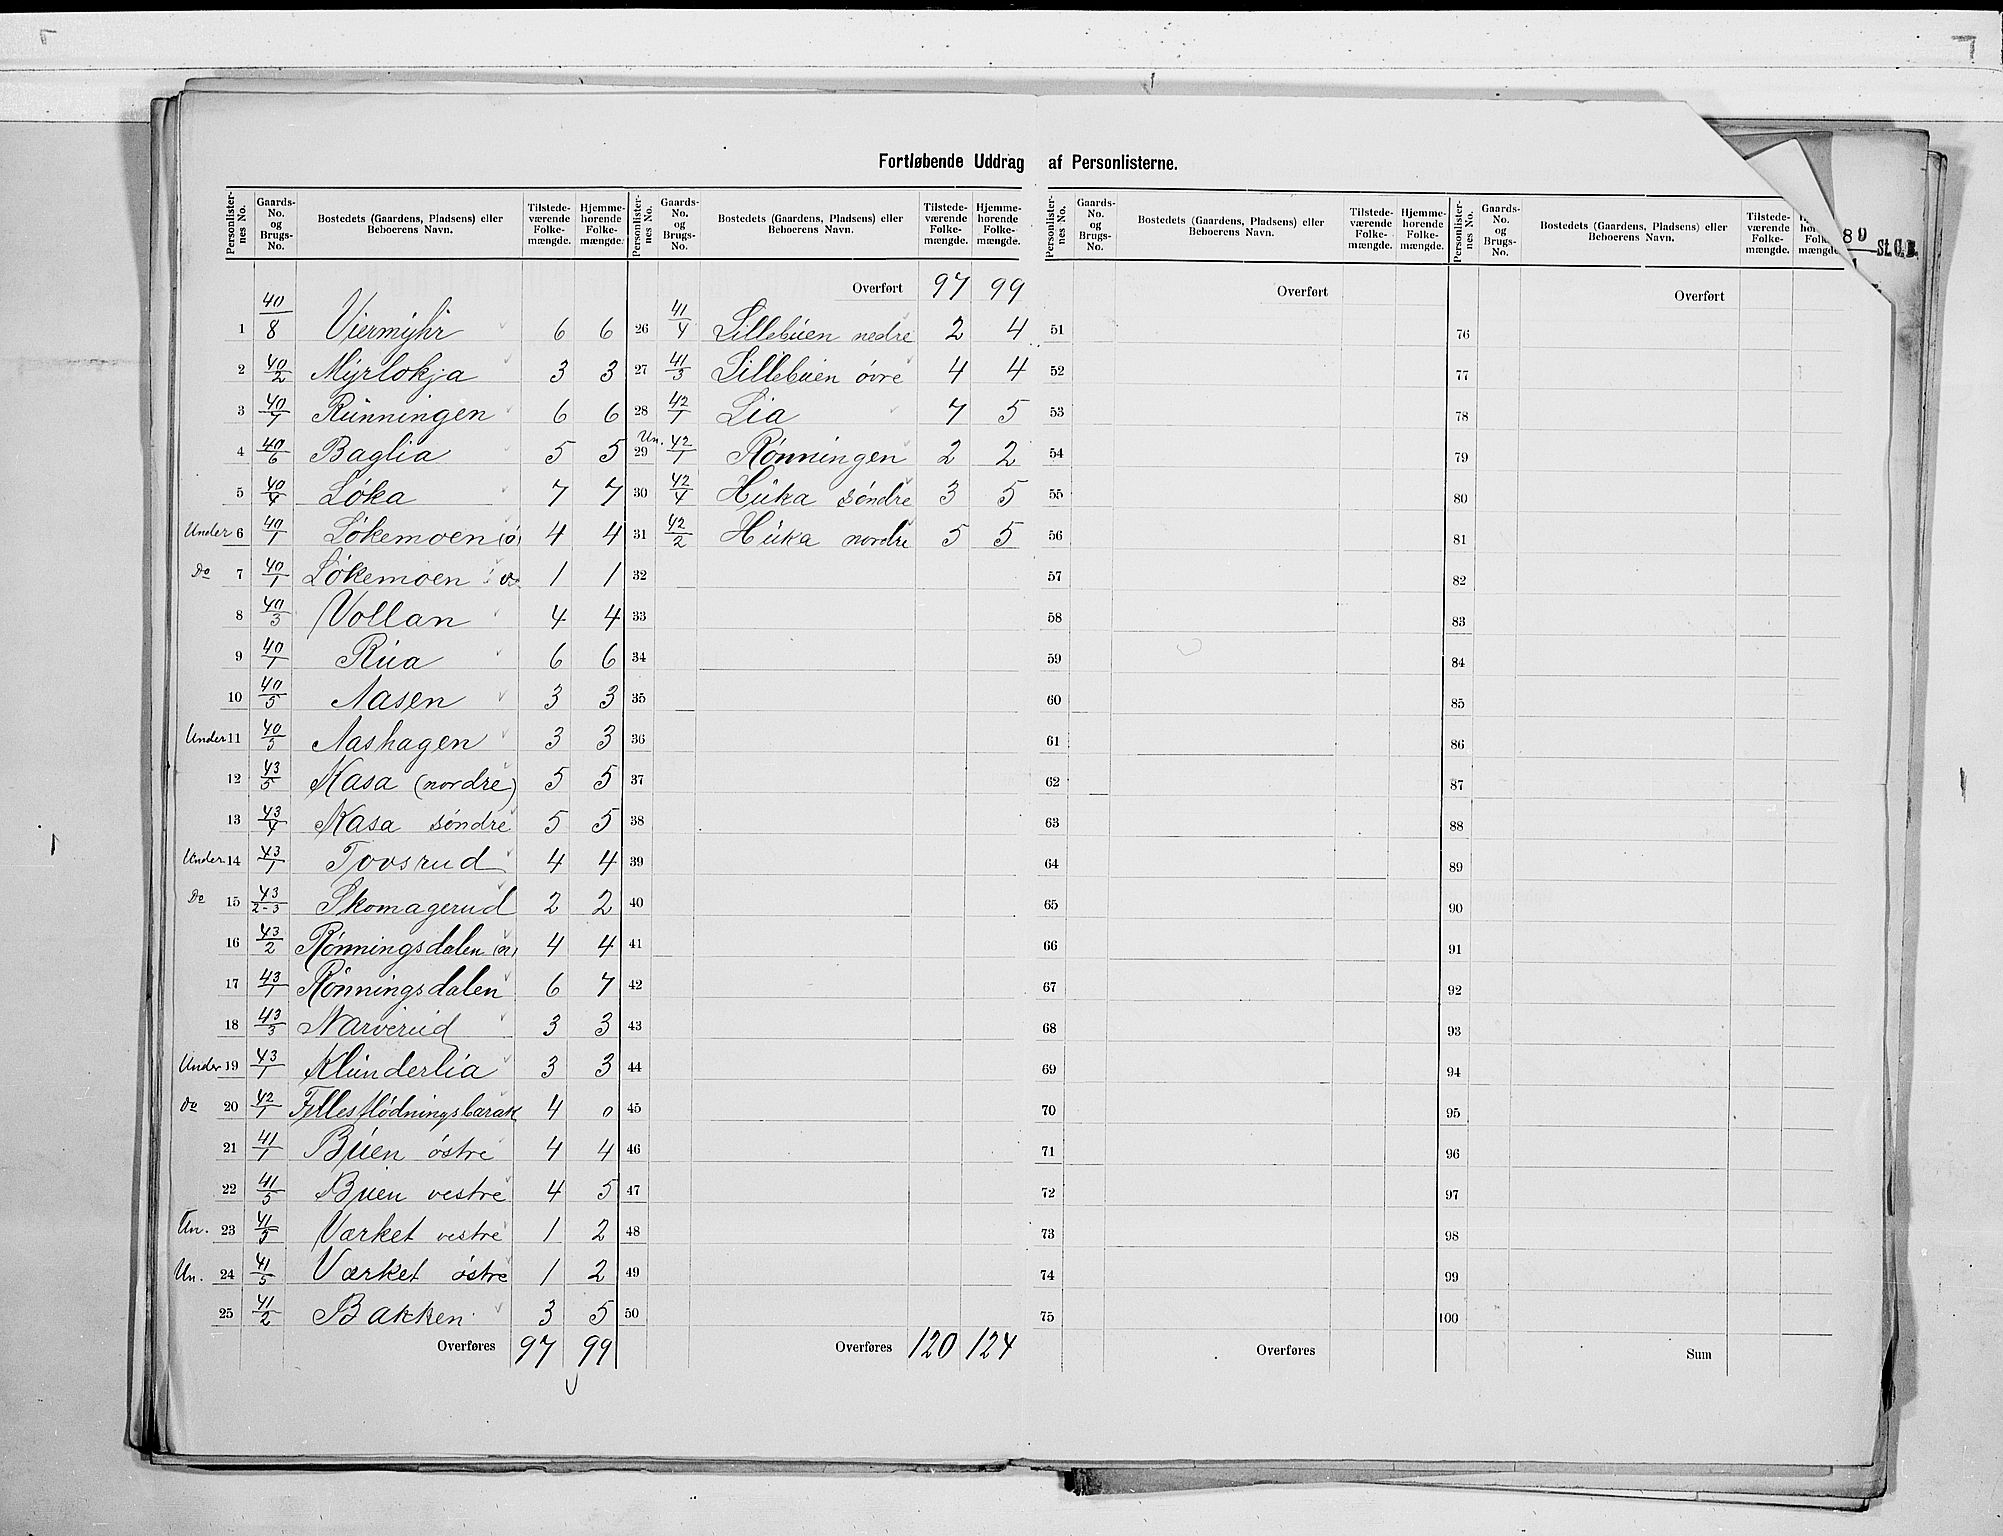 Fortløbende Uddrag af Personlisterne.
Personlisternes No. | Gaards-No. og Brugs-No. | Bostedets (Gaardens, Pladsens) eller Beboerens Navn. | Tilstedeværende Folkemængde. | Hjemmehørende Folkemængde.
1 40/8 Viermyhr 6 6
2 40/2 Myrlokja 3 3
3 40/7 Rünningen 6 6
4 40/6 Baglia 5 5
5 40/4 Løka 7 7
Under 6 40/1 Løkemoen (ø) 4 4
Do 7 40/1 Løkemoen v. 1 1
8 40/3 Vollan 4 4
9 40/1 Rua 6 6
10 40/5 Aasen 3 3
Under 11 40/5 Aashagen 3 3
12 43/5 Kasa (nordre) 5 5
13 43/4 Kasa søndre 5 5
Under 14 43/1 Tovsrud 4 4
Do 15 43/2-3 Skomagerud 2 2
16 43/2 Rønningsdalen (n) 4 4
17 43/1 Rønningsdalen 6 7
18 43/3 Narverud 3 3
Under 19 43/1 Klunderlia 3 3
Do 20 42/1 Fellesflødningsbarak 4 0
21 41/1 Buen østre 4 4
22 41/5 Buen vestre 4 5
Un. 23 41/5 Værket vestre 1 2
Un. 24 41/5 Værket østre 1 2
25 41/2 Bakken 3 5
Overføres 97 99
Personlisternes No. | Gaards-No. og Brugs-No. | Bostedets (Gaardens, Pladsens) eller Beboerens Navn. | Tilstedeværende Folkemængde. | Hjemmehørende Folkemængde.
Overført 97 99
26 41/4 Lillebuen nedre 2 4
27 41/3 Lillebuen øvre 4 4
28 42/1 Lia 7 5
Un. 29 42/1 Rønningen 2 2
30 42/4 Huka søndre 3 5
31 42/2 Huka nordre 5 5
32
33
34
35
36
37
38
39
40
41
42
43
44
45
46
47
48
49
50
Overføres 120 124
Personlisternes No. | Gaards-No. og Brugs-No. | Bostedets (Gaardens, Pladsens) eller Beboerens Navn. | Tilstedeværende Folkemængde. | Hjemmehørende Folkemængde.
Overført
51
52
53
54
55
56
57
58
59
60
61
62
63
64
65
66
67
68
69
70
71
72
73
74
75
Overføres
Personlisternes No. | Gaards-No. og Brugs-No. | Bostedets (Gaardens, Pladsens) eller Beboerens Navn. | Tilstedeværende Folkemængde.
Overført
76
77
78
79
80
81
82
83
84
85
86
87
88
89
90
91
92
93
94
95
96
97
98
99
100
Sum
89
St.C.B.